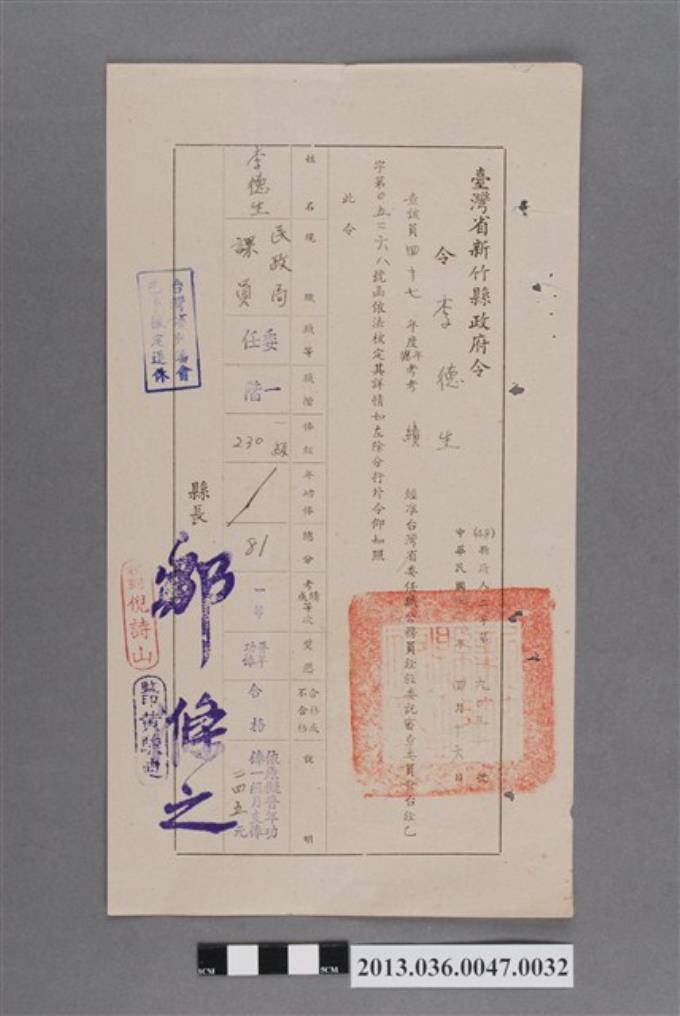 臺灣省新竹縣政府令
新府人二字第
號
中華民國
年四月十六日
令 李德生
查該員四十七年度年考考績經准台灣省委任職公務員銓敘委託審查委員會台銓乙
字第0五二六八號函依法核定其詳情如左除分行外令仰知照
此令
姓名 現職 職等 職階 俸級 年功俸 總分 考績成績等次 獎懲 合格或不合格 說明
李德生 民政局課員 委任 一階 一級230 / 81 一等 晉年功俸 合格 依原擬晉年功俸一級月支俸二四五元
縣長 鄒滌之
校對 倪詩山
監印